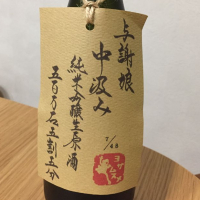 与謝娘
中汲み
純米吟醸生原酒
五百万石五割五分
7/48
ヨサムスメ